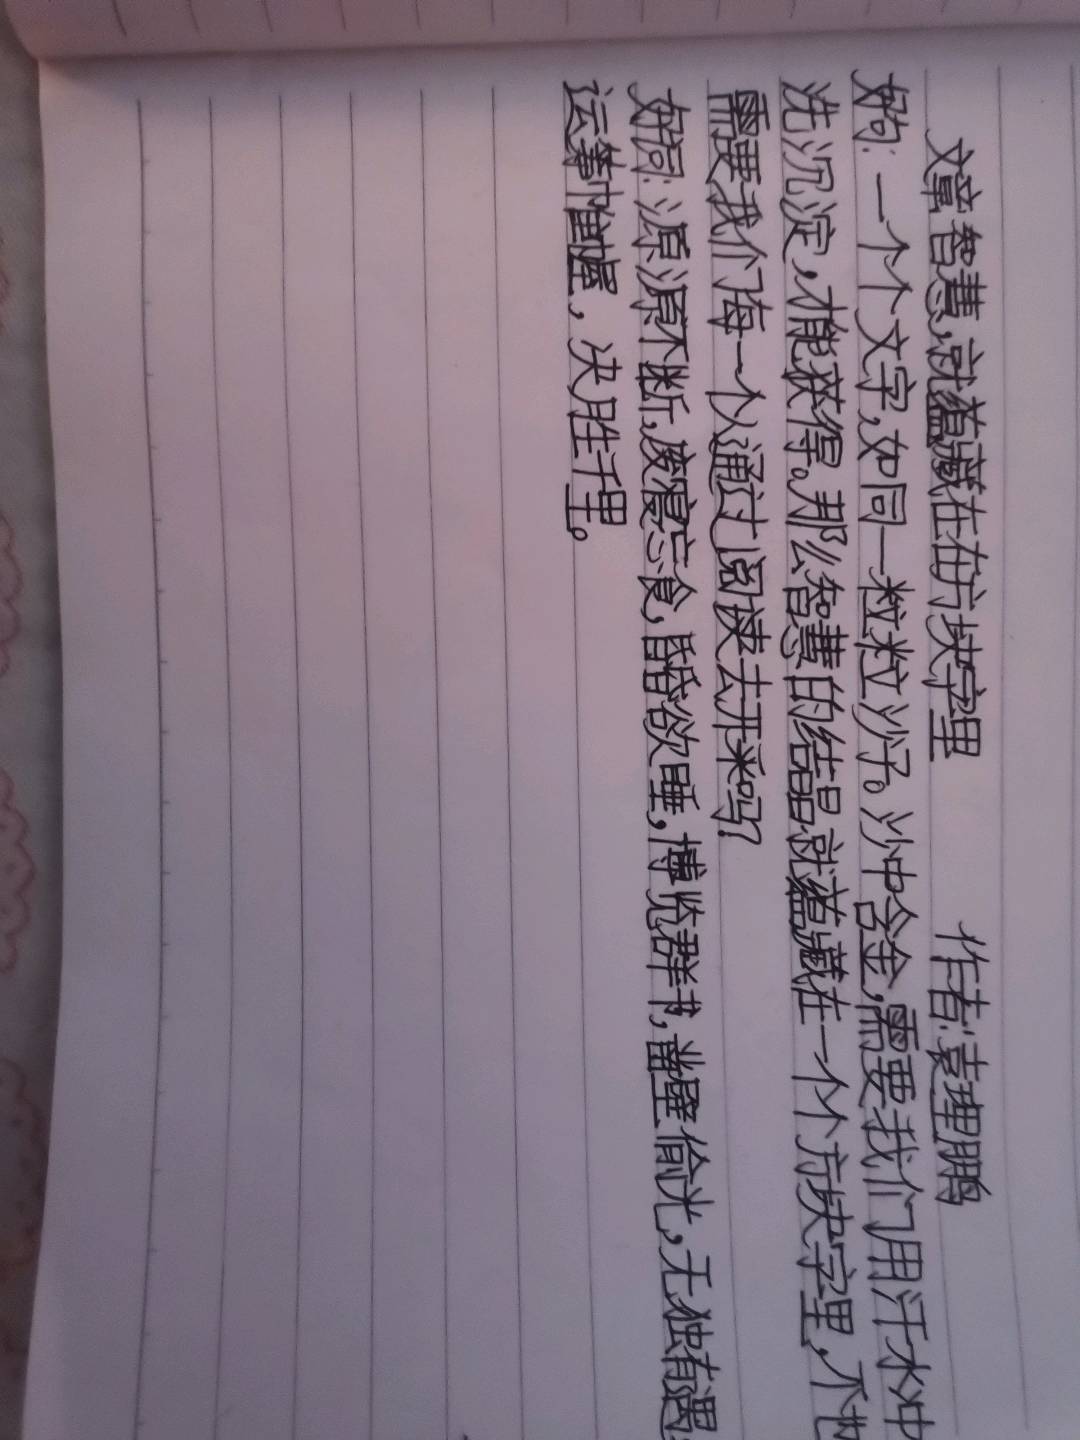 文章智慧,就蕴藏在在方块字里 作者:袁理鹏
好句:一个个文字,如同一粒粒沙子。沙中含金,需要我们用汗水冲
洗沉淀,才能获得。那么智慧的结晶就蕴藏在一个个方块字里,不也
需要我们每一个人通过阅读去开采吗?
好词:源源不断,废寝忘食,昏昏欲睡,博览群书,凿壁偷光,无独有偶
运筹帷幄,决胜千里。